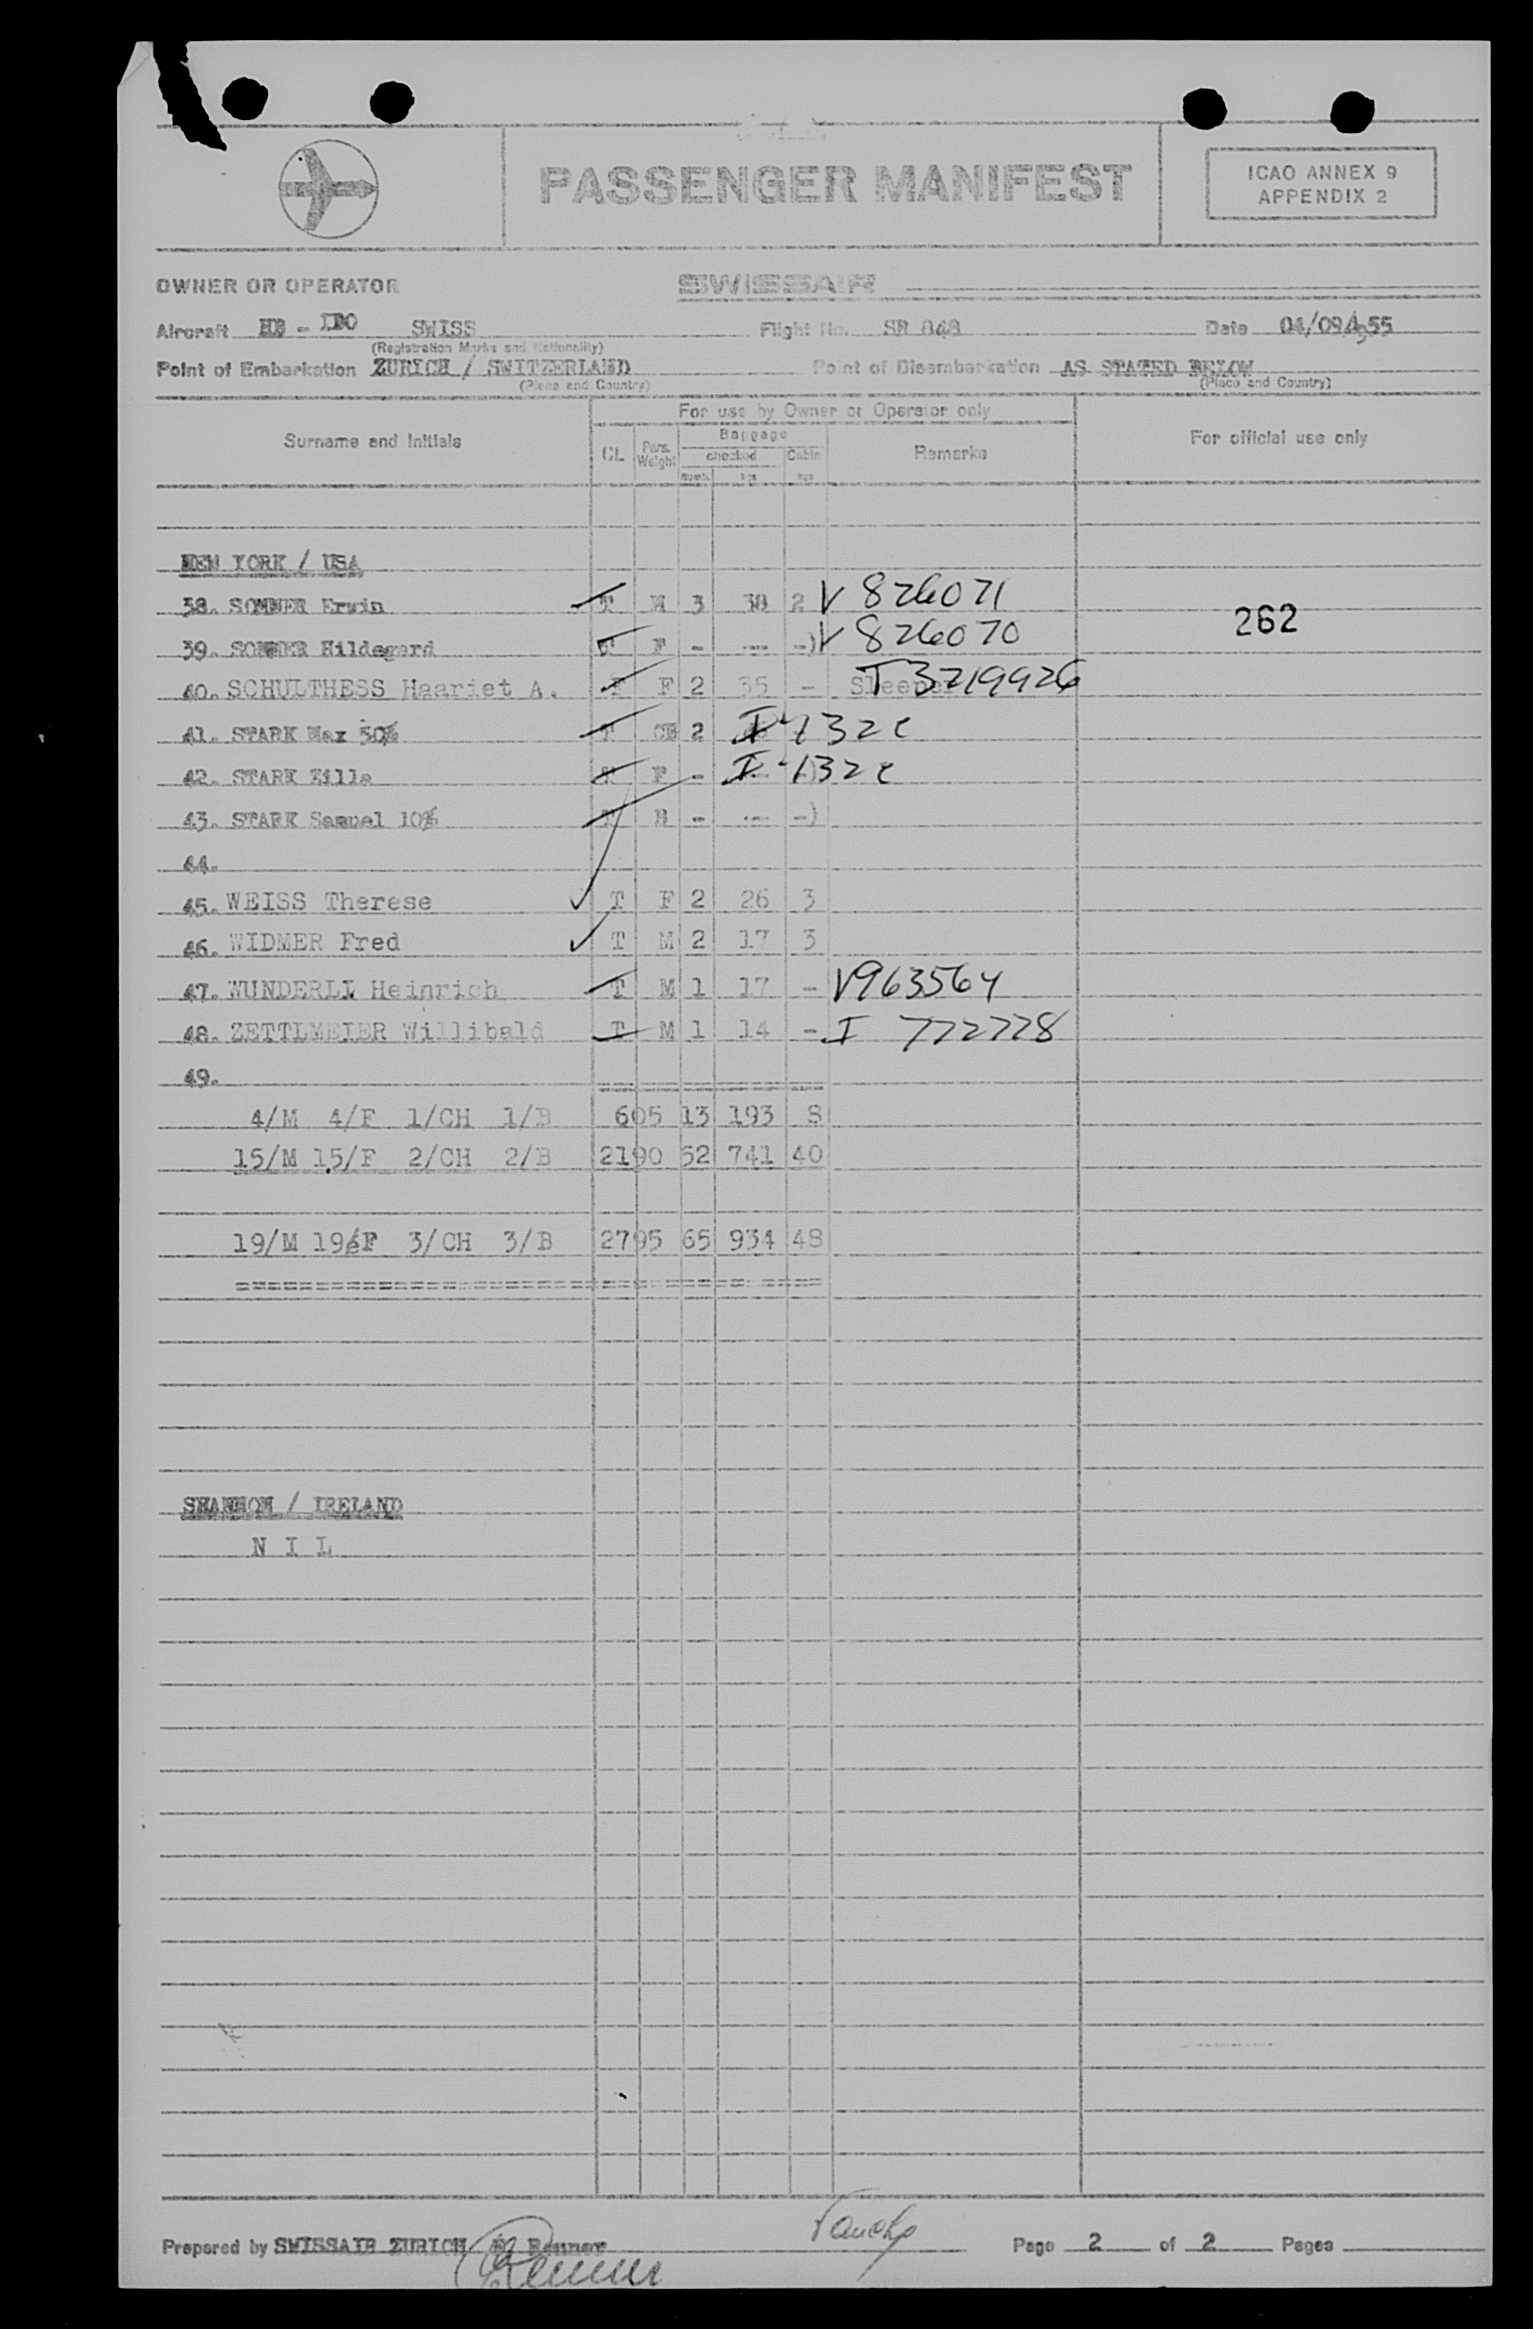 PASSENGER MANIFEST
ICAO ANNEX 9
APPENDIX 2
OWNER OR OPERATOR SWISSAIR
Aircraft HB - IBO SWISS Flight No. SR 848 Date 04/09/55
(Registration Marks and Nationality)
Point of Embarkation ZURICH / SWITZERLAND Point of Disembarkation AS STATED BELOW
(Place and Country) (Place and Country)
For use by Owner or Operator only
Surname and Initials CL Pers. Weight Baggage Remarks For official use only
checked Cabin
Numb. kgs kgs
NEW YORK / USA
38. SOMMER Erwin T M 3 38 2 V 826071
262
39. SOMMER Hildegard T F - --- -) V 826070
40. SCHULTHESS Haariet A. F F 2 35 - Sleeper T3219926
41. STARK Max 50% T CH 2 I
42. STARK Zilla T F - I
43. STARK Samuel 10% T B - --- -)
44.
45. WEISS Therese T F 2 26 3
46. WIDMER Fred T M 2 17 3
47. WUNDERLI Heinrich T M 1 17 - V963564
48. ZETTLMEIER Willibald T M 1 14 - I 772778
49.
4/M 4/F 1/CH 1/B 605 13 193 8
15/M 15/F 2/CH 2/B 2190 52 741 40
19/M 19/F 3/CH 3/B 2795 65 934 48
SHANNON / IRELAND
N I L
Prepared by SWISSAIR ZURICH Renner Page 2 of 2 Pages